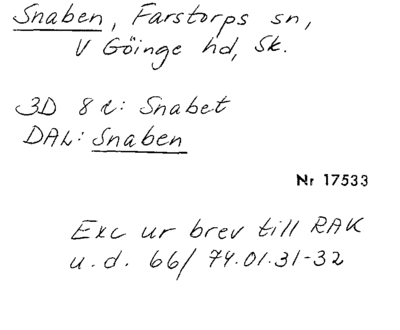 Snaben, Farstorps sn,
V Göinge hd, Sk.
3D 8 i: Snabet
DAL: Snaben
Nr 17533
Exc ur brev till RAK
u.d. 66/ 74.01.31-32